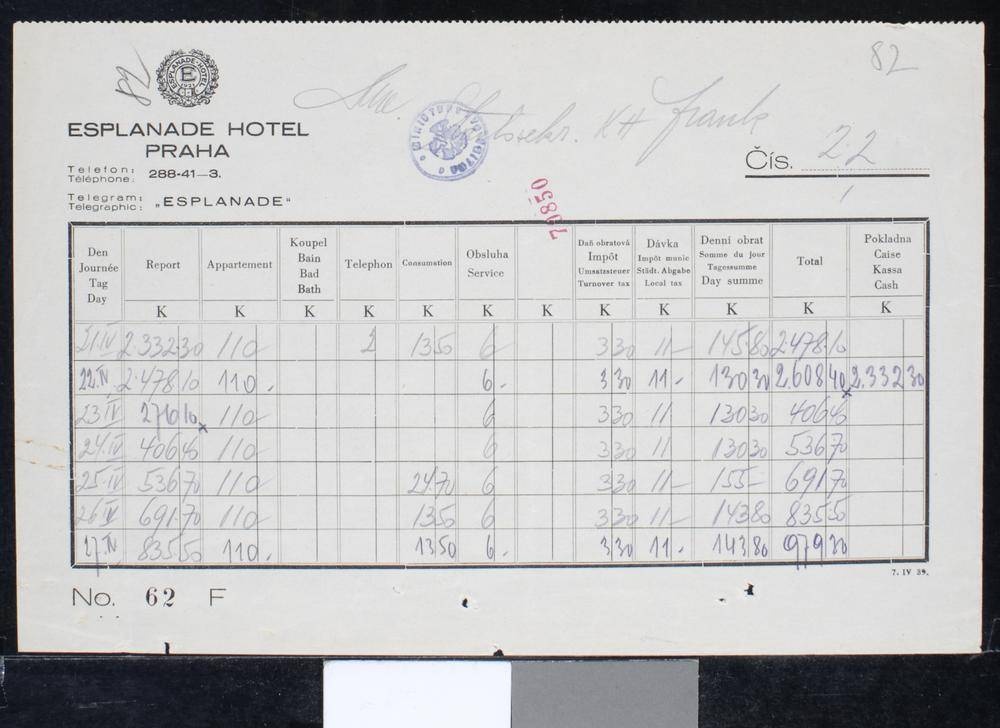 82
82
ESPLANADE-HOTEL
E
ESPLANADE HOTEL
PRAHA
Telefon:
Téléphone: 288-41—3.
Telegram:
Telegraphic: „ESPLANADE“
KH Frank
Čís. 22
79850
Den Journée Tag Day | Report | Appartement | Koupel Bain Bad Bath | Telephon | Consumation | Obsluha Service | | Daň obratová Impôt Umsatzsteuer Turnover tax | Dávka Impôt munic Städt. Abgabe Local tax | Denní obrat Somme du jour Tagessumme Day summe | Total | Pokladna Caise Kassa Cash
K K K K K K K K K K K K
21.IV 2.332 30 110 2 13 50 6 3 30 11 – 145 80 2478 10
22.IV 2.478 10 110. 6. 3 30 11 - 130 30 2,608 40 2.332 30
23 IV 276 10 110 6 3 30 11 – 130 30 406 40
24.IV 406 40 110 6 3 30 11 – 130 30 536 70
25.IV 536 70 110 24 70 6 3 30 11 – 155 – 691 70
26 IV 691.70 110 13 50 6 3 30 11 – 143 80 835 50
27.IV 835 50 110. 13 50 6. 3 30 11 - 143 80 979 30
7. IV 39.
No. 62 F